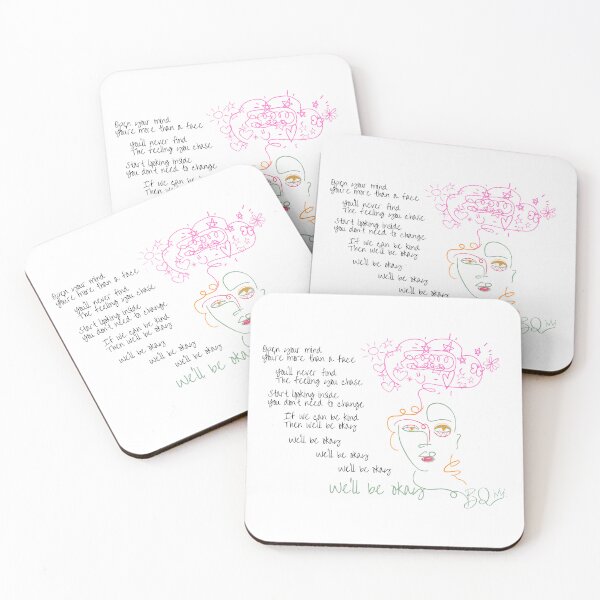 Open your mind
You're more than a face
You'll never find
The feeling you chase
Start looking inside
You don't need to change
If we can be
Open your mind
You're more than a face
You'll never find
The feeling you chase
Start looking inside
You don't need to change
If we can be kind
Then we'll be okay
we'll be okay
we'll be okay
we'll be okay
BQ
Open your mind
You're more than a face
You'll never find
The feeling you chase
Start looking inside
You don't need to change
If we can be kind
Then we'll be okay
we'll be okay
we'll be okay
we'll be okay
we'll be okay
Open your mind
You're more than a face
You'll never find
The feeling you chase
Start looking inside
You don't need to change
If we can be kind
Then we'll be okay
we'll be okay
we'll be okay
we'll be okay
we'll be okay
BQ